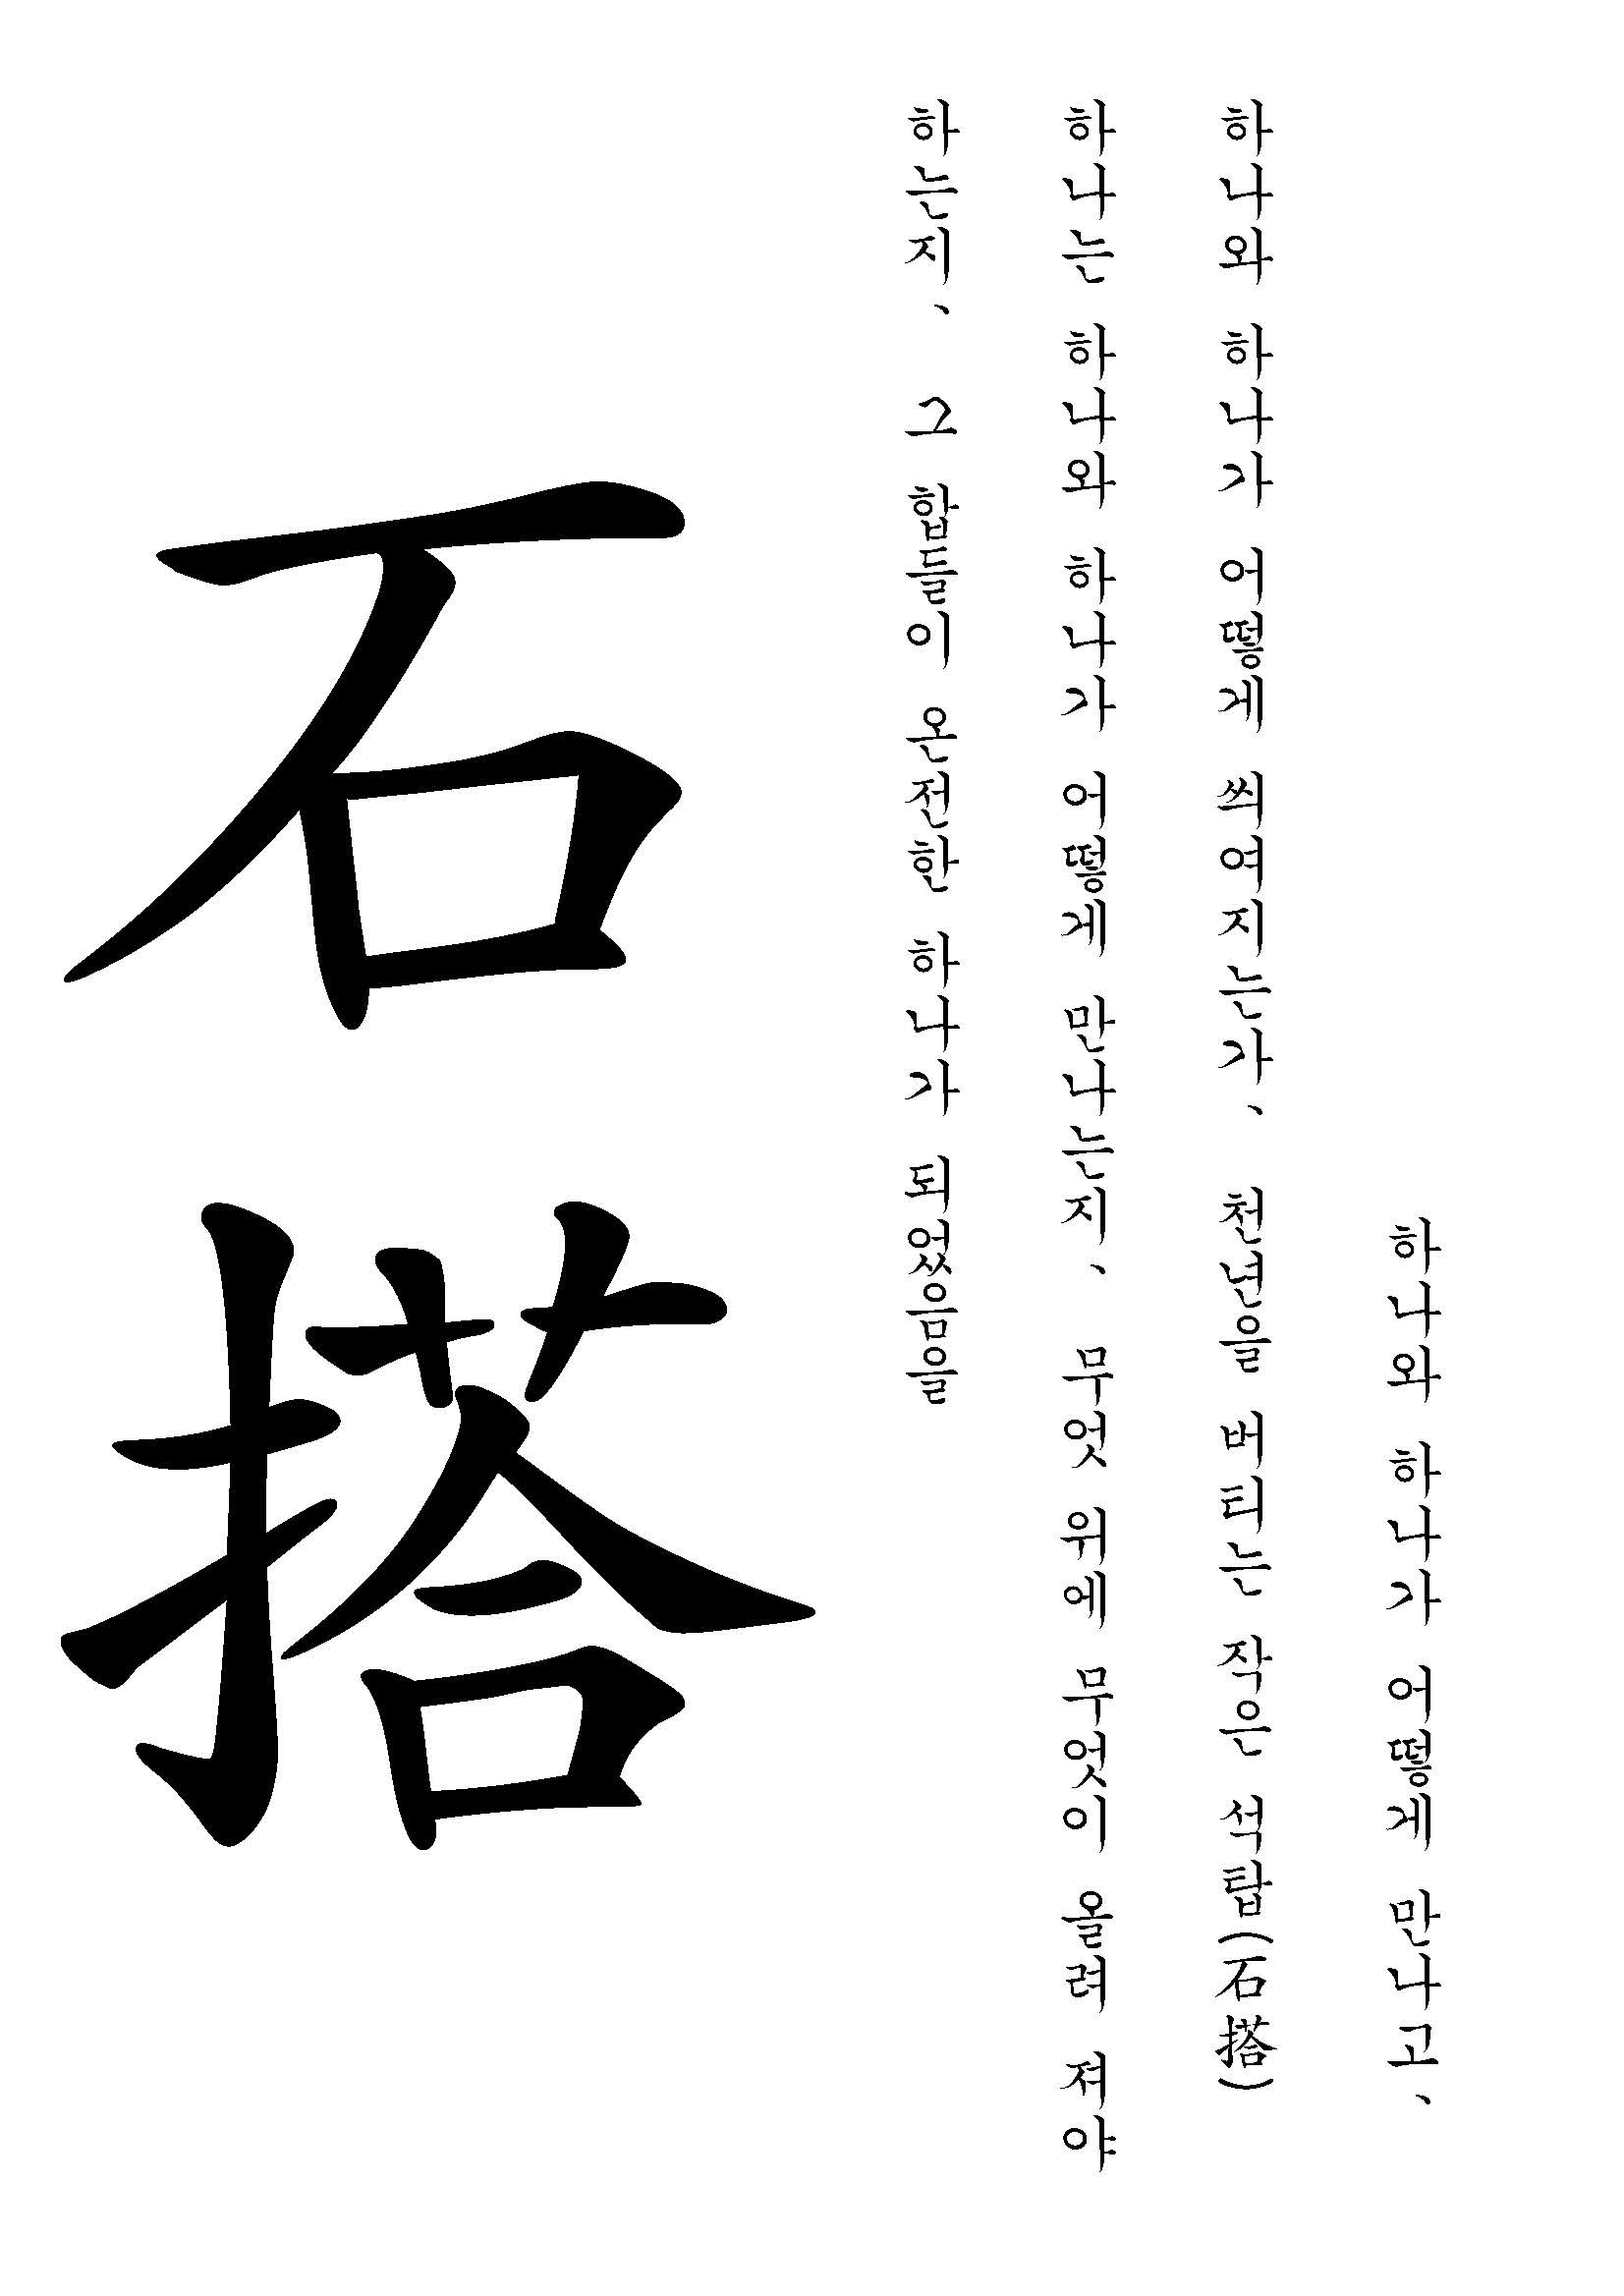 하나와 하나가 어떻게 만나고、
하나와 하나가 어떻게 씌여지는가、 천년을 버티는 작은 석탑(石搭)
하나는 하나와 하나가 어떻게 만나는지、 무엇 위에 무엇이 올려 져야
하는지、 그 합들이 온전한 하나가 되었음을
石搭